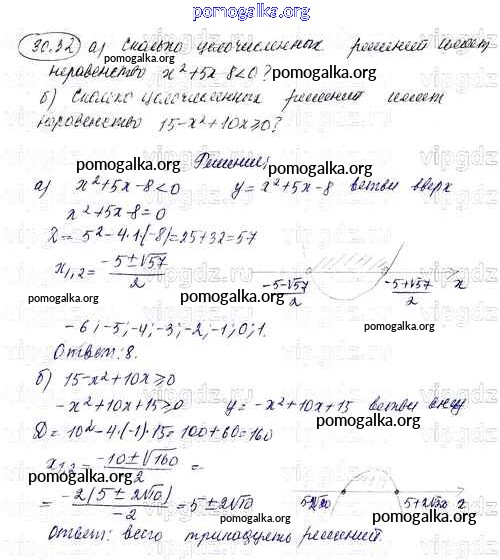 pomogalka.org
30.32 а) Сколько целочисленных решений имеет
неравенство x²+5x-8<0?
pomogalka.org
pomogalka.org
б) Сколько целочисленных решений имеет
неравенство 15-x²+10x≥0?
pomogalka.org
Решение:
pomogalka.org
а) x²+5x-8<0 y=x²+5x-8 ветви вверх
x²+5x-8=0
pomogalka.org
Д=5²-4·1·(-8)=25+32=57
pomogalka.org
x₁,₂=(-5±√57)/2
(-5-√57)/2 (-5+√57)/2 x
pomogalka.org
pomogalka.org
pomogalka.org
-6;-5;-4;-3;-2;-1;0;1.
Ответ: 8.
pomogalka.org
б) 15-x²+10x≥0
pomogalka.org
-x²+10x+15≥0 y=-x²+10x+15 ветви вниз
Д=10²-4·(-1)·15=100+60=160
pomogalka.org
x₁,₂=(-10±√160)/2=
pomogalka.org
=-2(5±2√10)/-2=5±2√10
5-2√10 5+2√10 x
pomogalka.org
Ответ: всего тринадцать решений.
pomogalka.org